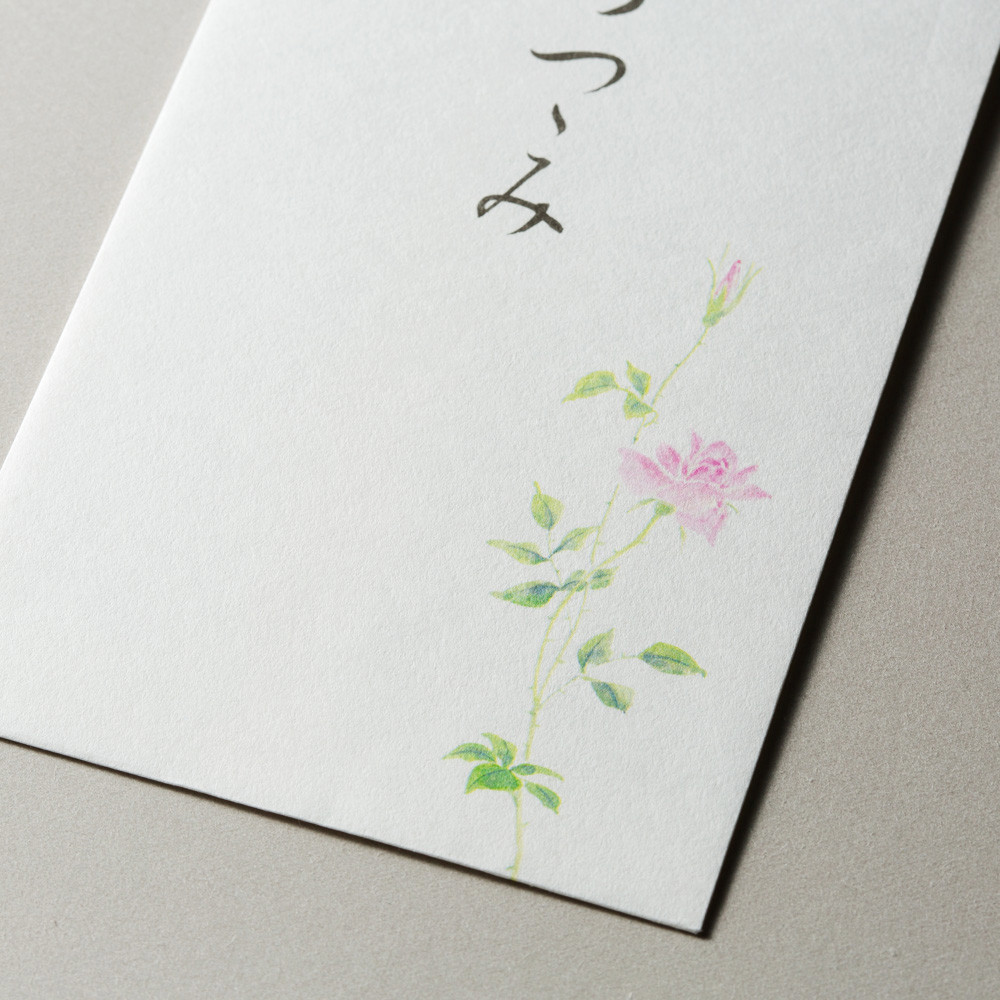 つゝみ